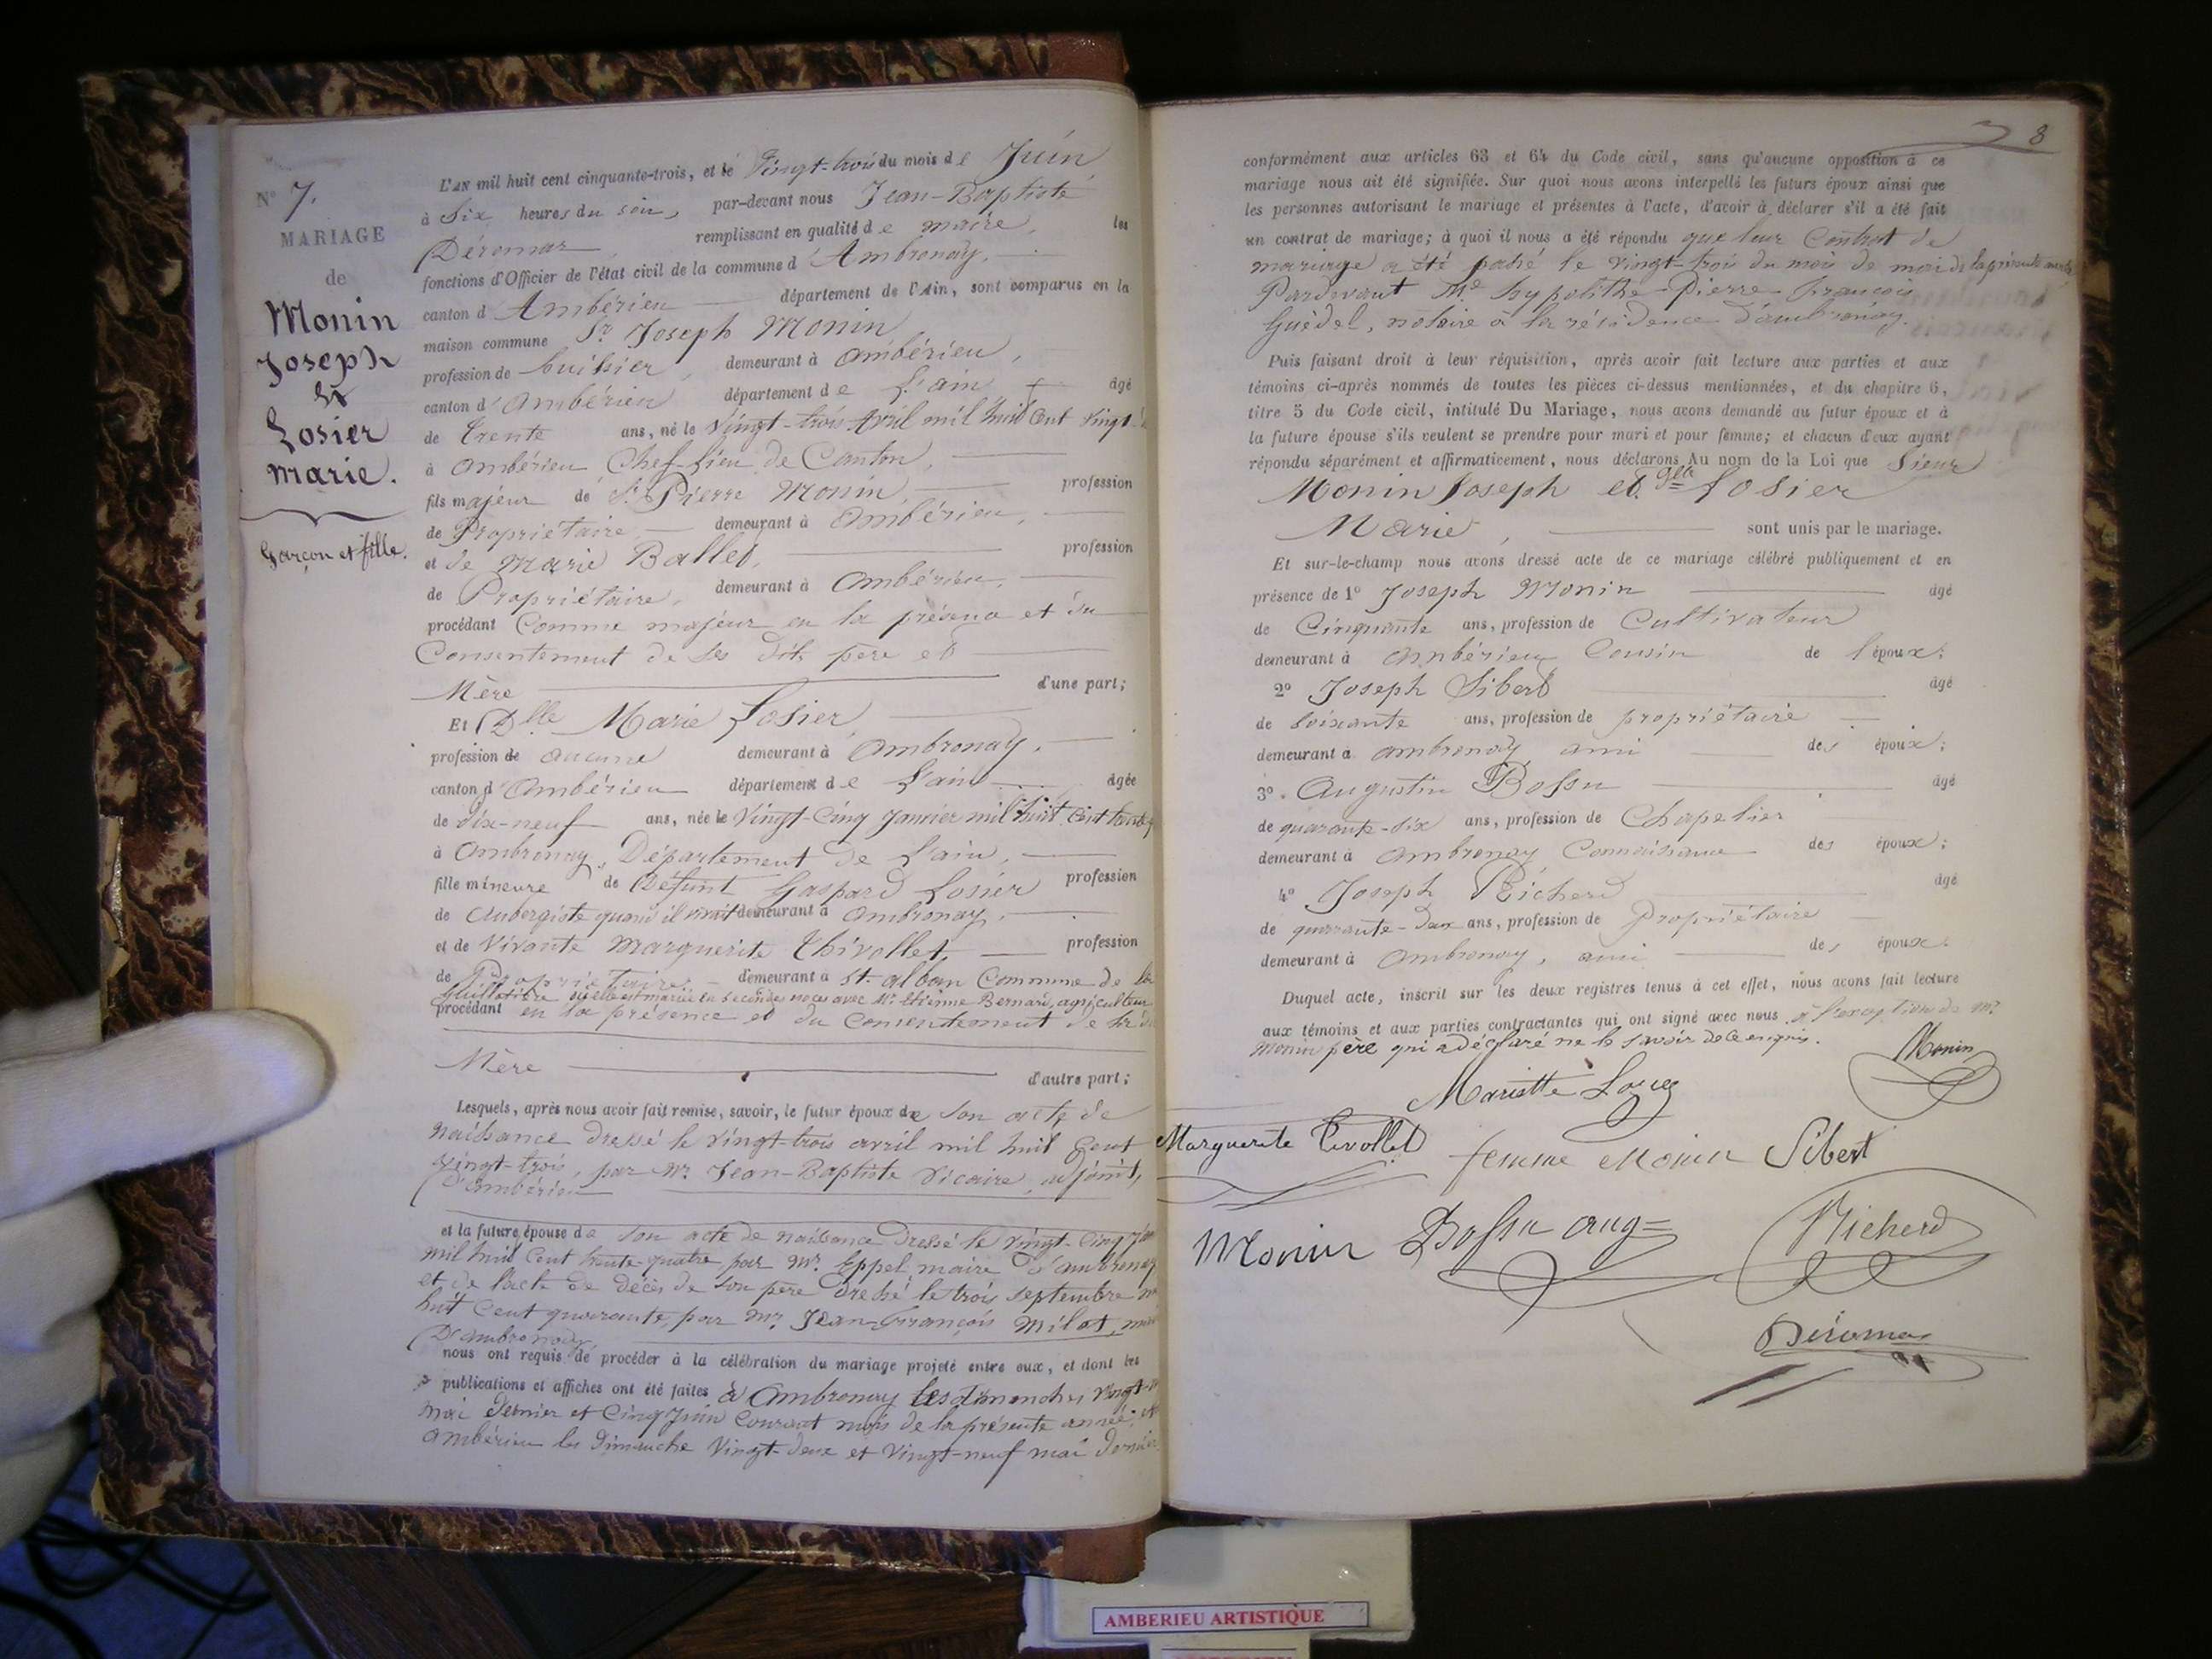 N° 7.
MARIAGE
de
Monin
Joseph
&
Losier
marie.
Garçon et fille.
L'AN mil huit cent cinquante-trois, et le Vingt-trois du mois de Juin
à Six heures du soir, par-devant nous Jean-Baptiste
Déromas remplissant en qualité de maire, les
fonctions d'Officier de l'état civil de la commune d'Ambronay,
canton d'Ambérieu département de l'Ain, sont comparus en la
maison commune Sr Joseph Monin
profession de huissier, demeurant à ambérieu,
canton d'ambérieu département de L'ain âgé
de trente ans, né le Vingt-trois Avril mil huit Cent vingt-
à ambérieu Chef-lieu de Canton,
fils majeur de Sr Pierre Monin, profession
de Propriétaire demeurant à ambérieu,
et de Marie Ballet, profession
de Propriétaire, demeurant à ambérieu,
procédant Comme majeur en la présence et du
Consentement de ses dits père et
Mère d'une part;
Et Dlle Marie Losier,
profession de aucune demeurant à ambronay,
canton d'ambérieu département de L'ain âgée
de dix-neuf ans, née le Vingt-Cinq Janvier mil huit Cent
à ambronay, Département de L'ain,
fille mineure de Défunt Gaspard Losier profession
de aubergiste quand il vivait demeurant à ambronay,
et de Vivante Marguerite Thivollet profession
de Propriétaire demeurant à St alban Commune de la
Guillotière où elle est mariée en secondes noces avec Mr Etienne Bernard, agriculteur
procédant en la présence et du Consentement de sa
Mère d'autre part;
Lesquels, après nous avoir fait remise, savoir, le futur époux de son acte de
naissance dressé le vingt-trois avril mil huit Cent
Vingt-trois, par Mr Jean-Baptiste Vicaire, adjoint,
d'ambérieu
et la future épouse de son acte de naissance dressé le vingt-Cinq
mil huit Cent trente-quatre par Mr Eppel, maire d'ambronay
et de l'acte de décès de son père dressé le trois septembre
huit Cent quarante, par Mr Jean-François Milat,
D'ambronay
nous ont requis de procéder à la célébration du mariage projeté entre eux, et dont les
publications et affiches ont été faites à Ambronay les dimanches Vingt-
mai dernier et Cinq Juin Courant mois de la présente année, et
ambérieu les Dimanche Vingt-deux et Vingt-neuf mai dernier
8
conformément aux articles 63 et 64 du Code civil, sans qu'aucune opposition à ce
mariage nous ait été signifiée. Sur quoi nous avons interpellé les futurs époux ainsi que
les personnes autorisant le mariage et présentes à l'acte, d'avoir à déclarer s'il a été fait
un contrat de mariage; à quoi il nous a été répondu que leur Contrat de
mariage a été passé le Vingt-trois du mois de mai de la présente année
Pardevant Me hypolithe-Pierre-françois
Guédel, notaire à la résidence d'ambronay.
Puis faisant droit à leur réquisition, après avoir fait lecture aux parties et aux
témoins ci-après nommés de toutes les pièces ci-dessus mentionnées, et du chapitre 6,
titre 5 du Code civil, intitulé Du Mariage, nous avons demandé au futur époux et à
la future épouse s'ils veulent se prendre pour mari et pour femme; et chacun d'eux ayant
répondu séparément et affirmativement, nous déclarons Au nom de la Loi que Sieur
Monin Joseph et Dlle Losier
Marie, sont unis par le mariage.
Et sur-le-champ nous avons dressé acte de ce mariage célébré publiquement et en
présence de 1° Joseph Monin âgé
de Cinquante ans, profession de Cultivateur
demeurant à ambérieu Cousin de l'époux;
2° Joseph Sibert âgé
de soixante ans, profession de propriétaire
demeurant à ambronay ami des époux;
3° Augustin Bossu âgé
de quarante-six ans, profession de Chapelier
demeurant à ambronay Connaissance des époux;
4° Joseph Richerd âgé
de quarante-deux ans, profession de Propriétaire
demeurant à ambronay, ami des époux.
Duquel acte, inscrit sur les deux registres tenus à cet effet, nous avons fait lecture
aux témoins et aux parties contractantes qui ont signé avec nous à l'exception de Mr
Monin père qui a déclaré ne le savoir de ce enquis.
Monin
Mariette
Marguerite Tivollet femme Monin Sibert
Monin Bossu aug= Richerd
Déromas
AMBERIEU ARTISTIQUE